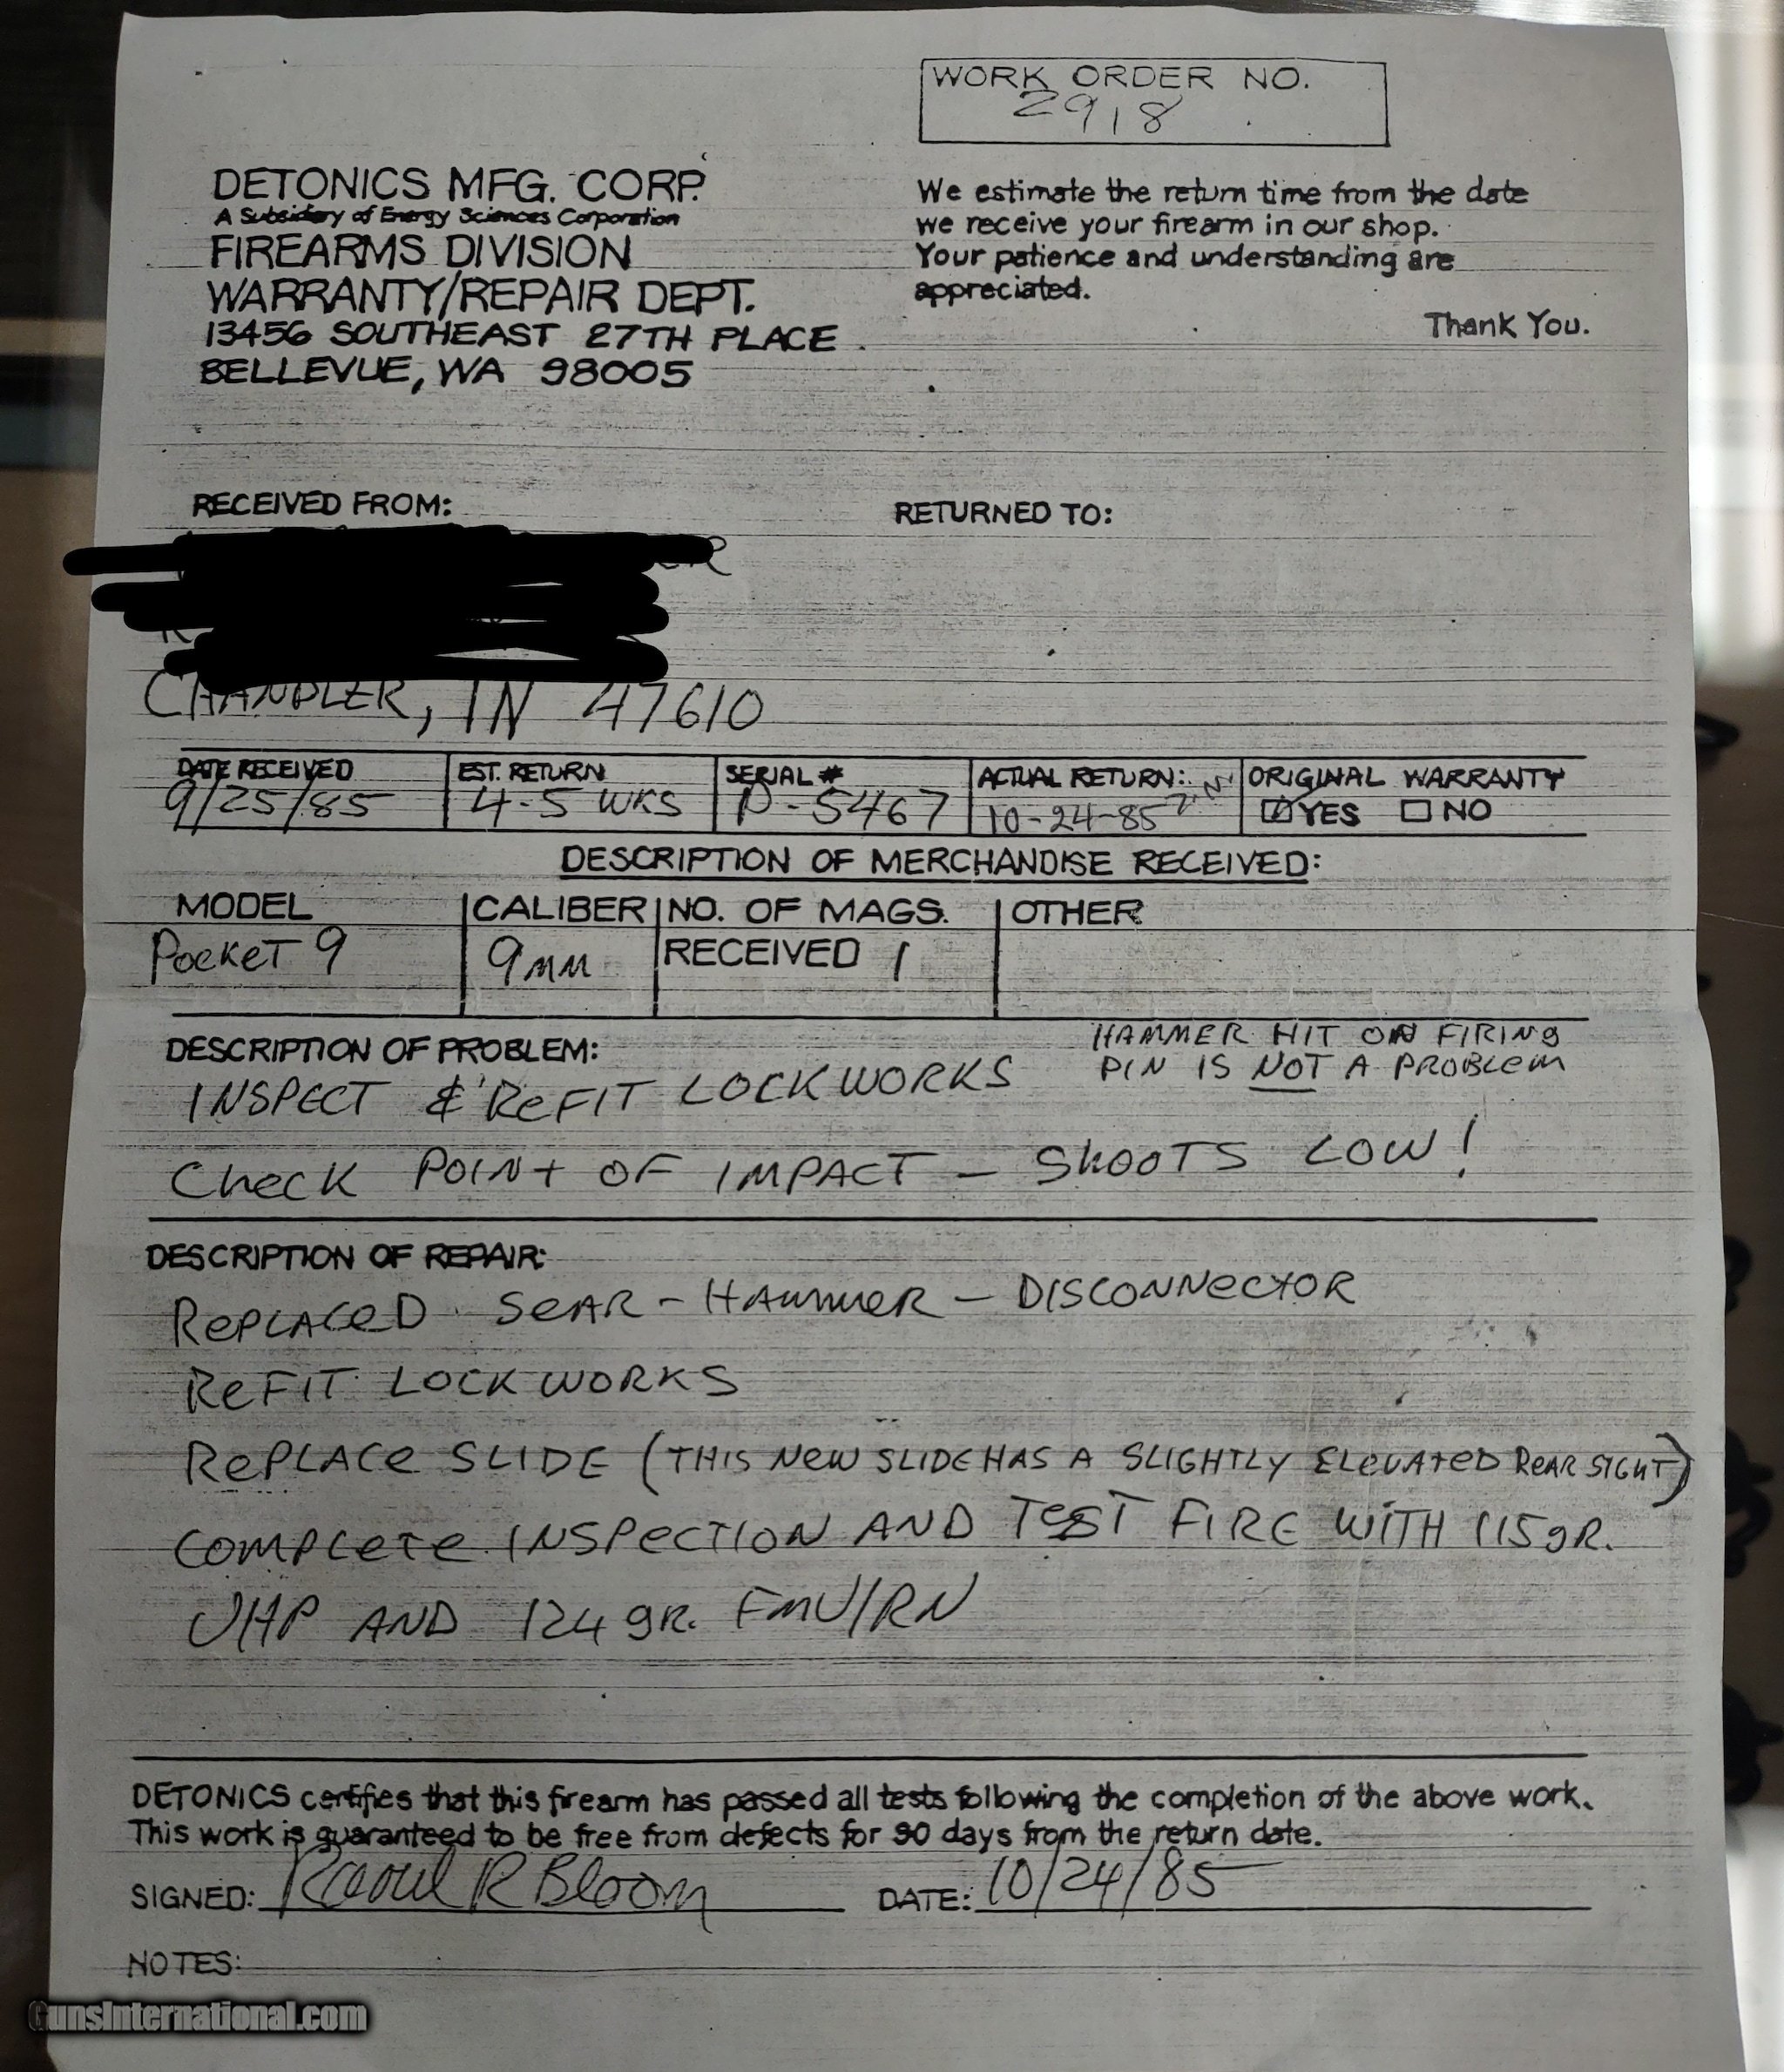 WORK ORDER NO.
2918
DETONICS MFG. CORP.
A Subsidiary of Energy Sciences Corporation
FIREARMS DIVISION
WARRANTY/REPAIR DEPT.
13456 SOUTHEAST 27TH PLACE
BELLEVUE, WA 98005
We estimate the return time from the date
we receive your firearm in our shop.
Your patience and understanding are
appreciated.
Thank You.
RECEIVED FROM:
RETURNED TO:
CHANDLER, IN 47610
DATE RECEIVED
9/25/85
EST. RETURN
4-5 WKS
SERIAL #
P-5467
ACTUAL RETURN:
10-24-85
ORIGINAL WARRANTY
YES NO
DESCRIPTION OF MERCHANDISE RECEIVED:
MODEL
POCKET 9
CALIBER
9MM
NO. OF MAGS.
RECEIVED 1
OTHER
DESCRIPTION OF PROBLEM:
HAMMER HIT ON FIRING
PIN IS NOT A PROBLEM
INSPECT & REFIT LOCKWORKS
CHECK POINT OF IMPACT - SHOOTS LOW!
DESCRIPTION OF REPAIR:
REPLACED SEAR - HAMMER - DISCONNECTOR
REFIT LOCKWORKS
REPLACE SLIDE (THIS NEW SLIDE HAS A SLIGHTLY ELEVATED REAR SIGHT)
COMPLETE INSPECTION AND TEST FIRE WITH 115 gR.
JHP AND 124 gR. FMJ/RN
DETONICS certifies that this firearm has passed all tests following the completion of the above work.
This work is guaranteed to be free from defects for 90 days from the return date.
SIGNED: Raoul R Bloom
DATE: 10/24/85
NOTES:
GunsInternational.com